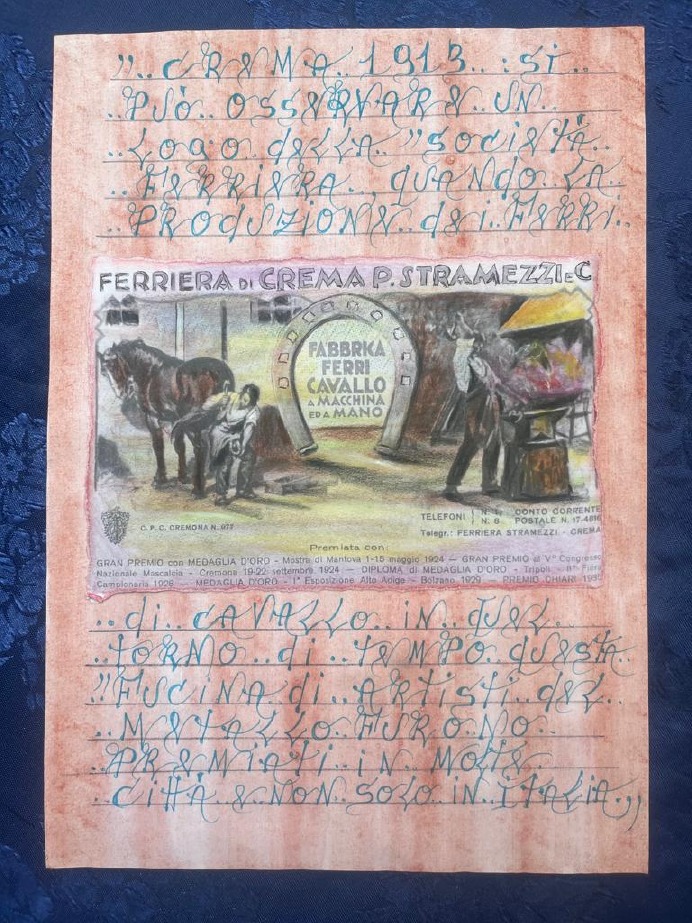 ”.. CREMA.. 1913.. : Si..
..PUò.. OSSERVARE.. UN..
..LOGO.. dELLA.. ”SOCIETÀ..
..FERRIERA.., QUANDO.. LA..
..PRODUZIONE.. dEi.. FERRi..
FERRIERA DI CREMA P. STRAMEZZI E C
FABBRKA
FERRI
CAVALLO
A MACCHINA
ED A MANO
TELEFONI N. 1, CONTO CORRENTE
N. 8 POSTALE N. 17-4816
C. P. C. CREMONA N. 972
Telegr.: FERRIERA STRAMEZZI - CREMA
Premiata con:
GRAN PREMIO con MEDAGLIA D'ORO - Mostra di Mantova 1-15 maggio 1924 — GRAN PREMIO al V° Congresso
Nazionale Mascalcia - Cremona 19-22 settembre 1924 — DIPLOMA di MEDAGLIA D'ORO - Tripoli - Fiera
Campionaria - MEDAGLIA D'ORO - 1ª Esposizione Alto Adige - Bolzano 1929 - PREMIO CHIARI
..di.. CAVALLO.. iN.. QUEL..
..TORNO.. di.. TEMPO.. QUESTA..
”FUCiNA.. di.. ARTiSTi.. dEL..
..METALLO.. FURONO..
..PREMiATi.. iN.. MOLTE..
..CiTTÀ.. E.. NON.. SOLO.. iN.. ITALIA.,,